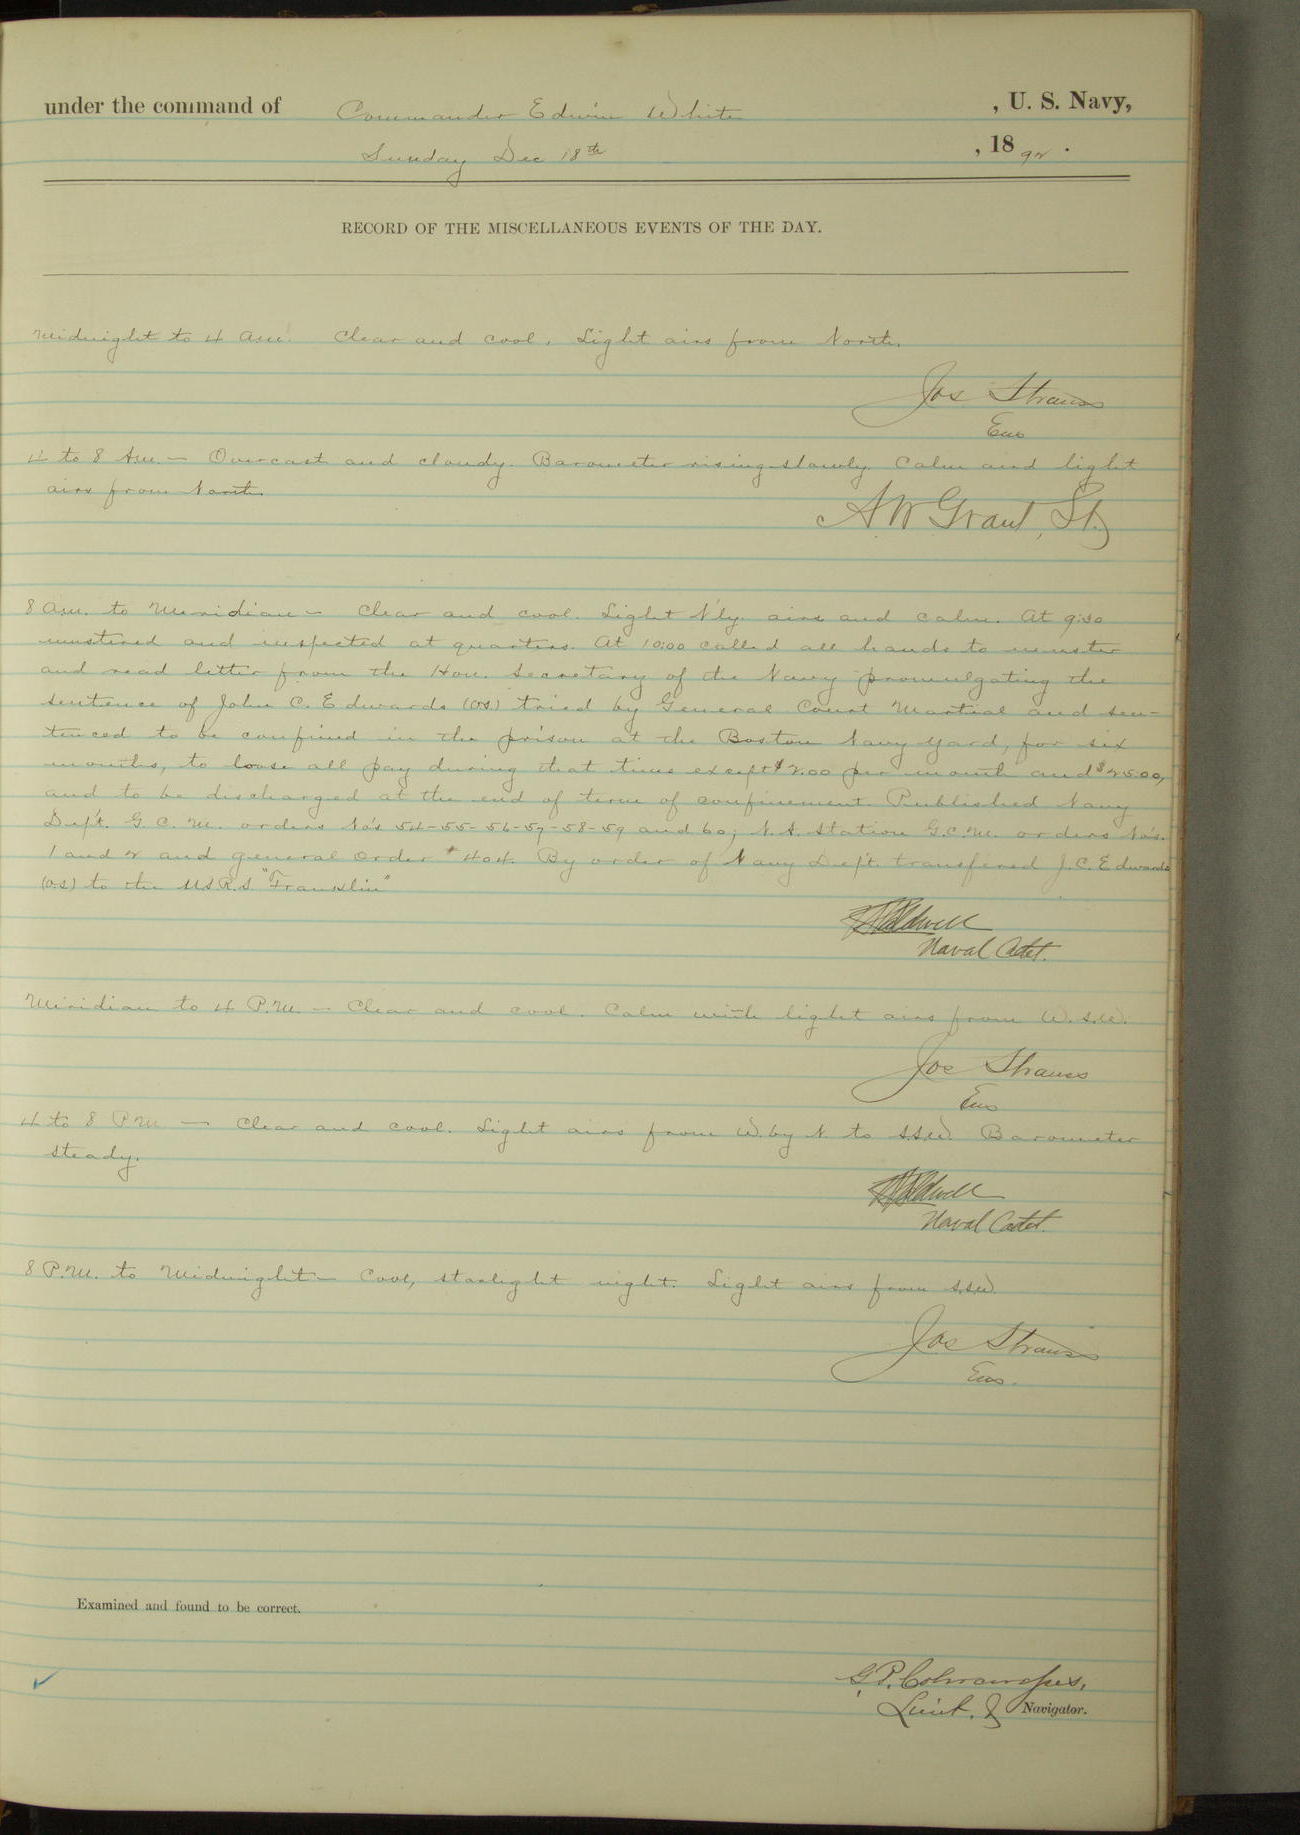 under the command of Commander Edwin White , U. S. Navy,
Sunday Dec 18th , 1892.
RECORD OF THE MISCELLANEOUS EVENTS OF THE DAY.
Midnight to 4 am. Clear and cool. Light airs from North.
Jos Strauss
Ens
4 to 8 Am. — Overcast and cloudy. Barometer rising slowly. Calm and light
airs from North.
A W Grant, Lt.
8 am. to Meridian — Clear and cool. Light N'ly. airs and calm. At 9:30
mustered and inspected at quarters. At 10:00 called all hands to muster
and read letter from the Hon. Secretary of the Navy promulgating the
sentence of John C. Edwards (OS) tried by General Court Martial and sen-
tenced to be confined in the prison at the Boston Navy Yard, for six
months, to loose all pay during that time except $2.00 per month and $25.00,
and to be discharged at the end of term of confinement. Published Navy
Dep't. G. C. M. orders No's 54-55-56-57-58-59 and 60; N.A. Station G.C.M. orders No's.
1 and 2 and general order # 404. By order of Navy Dep't. transfered J. C. Edwards
(O.S) to the U.S.R.S "Franklin"
Naval Cadet.
Meridian to 4 P.M. — Clear and cool. Calm with light airs from W.S.W.
Jos Strauss
Ens
4 to 8 P.M. — Clear and cool. Light airs from W. by N. to S.S.W. Barometer
steady.
Naval Cadet.
8 P.M. to Midnight — Cool, starlight night. Light airs from S.S.W.
Jos Strauss
Ens.
Examined and found to be correct.
Lieut. & Navigator.